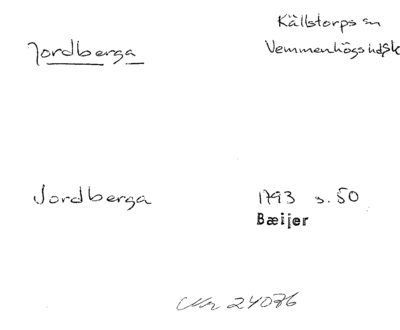 Källstorps sn
Jordberga Vemmenhögs hd, Sk
Jordberga 1793 s. 50
Bæijer
Nr 24076